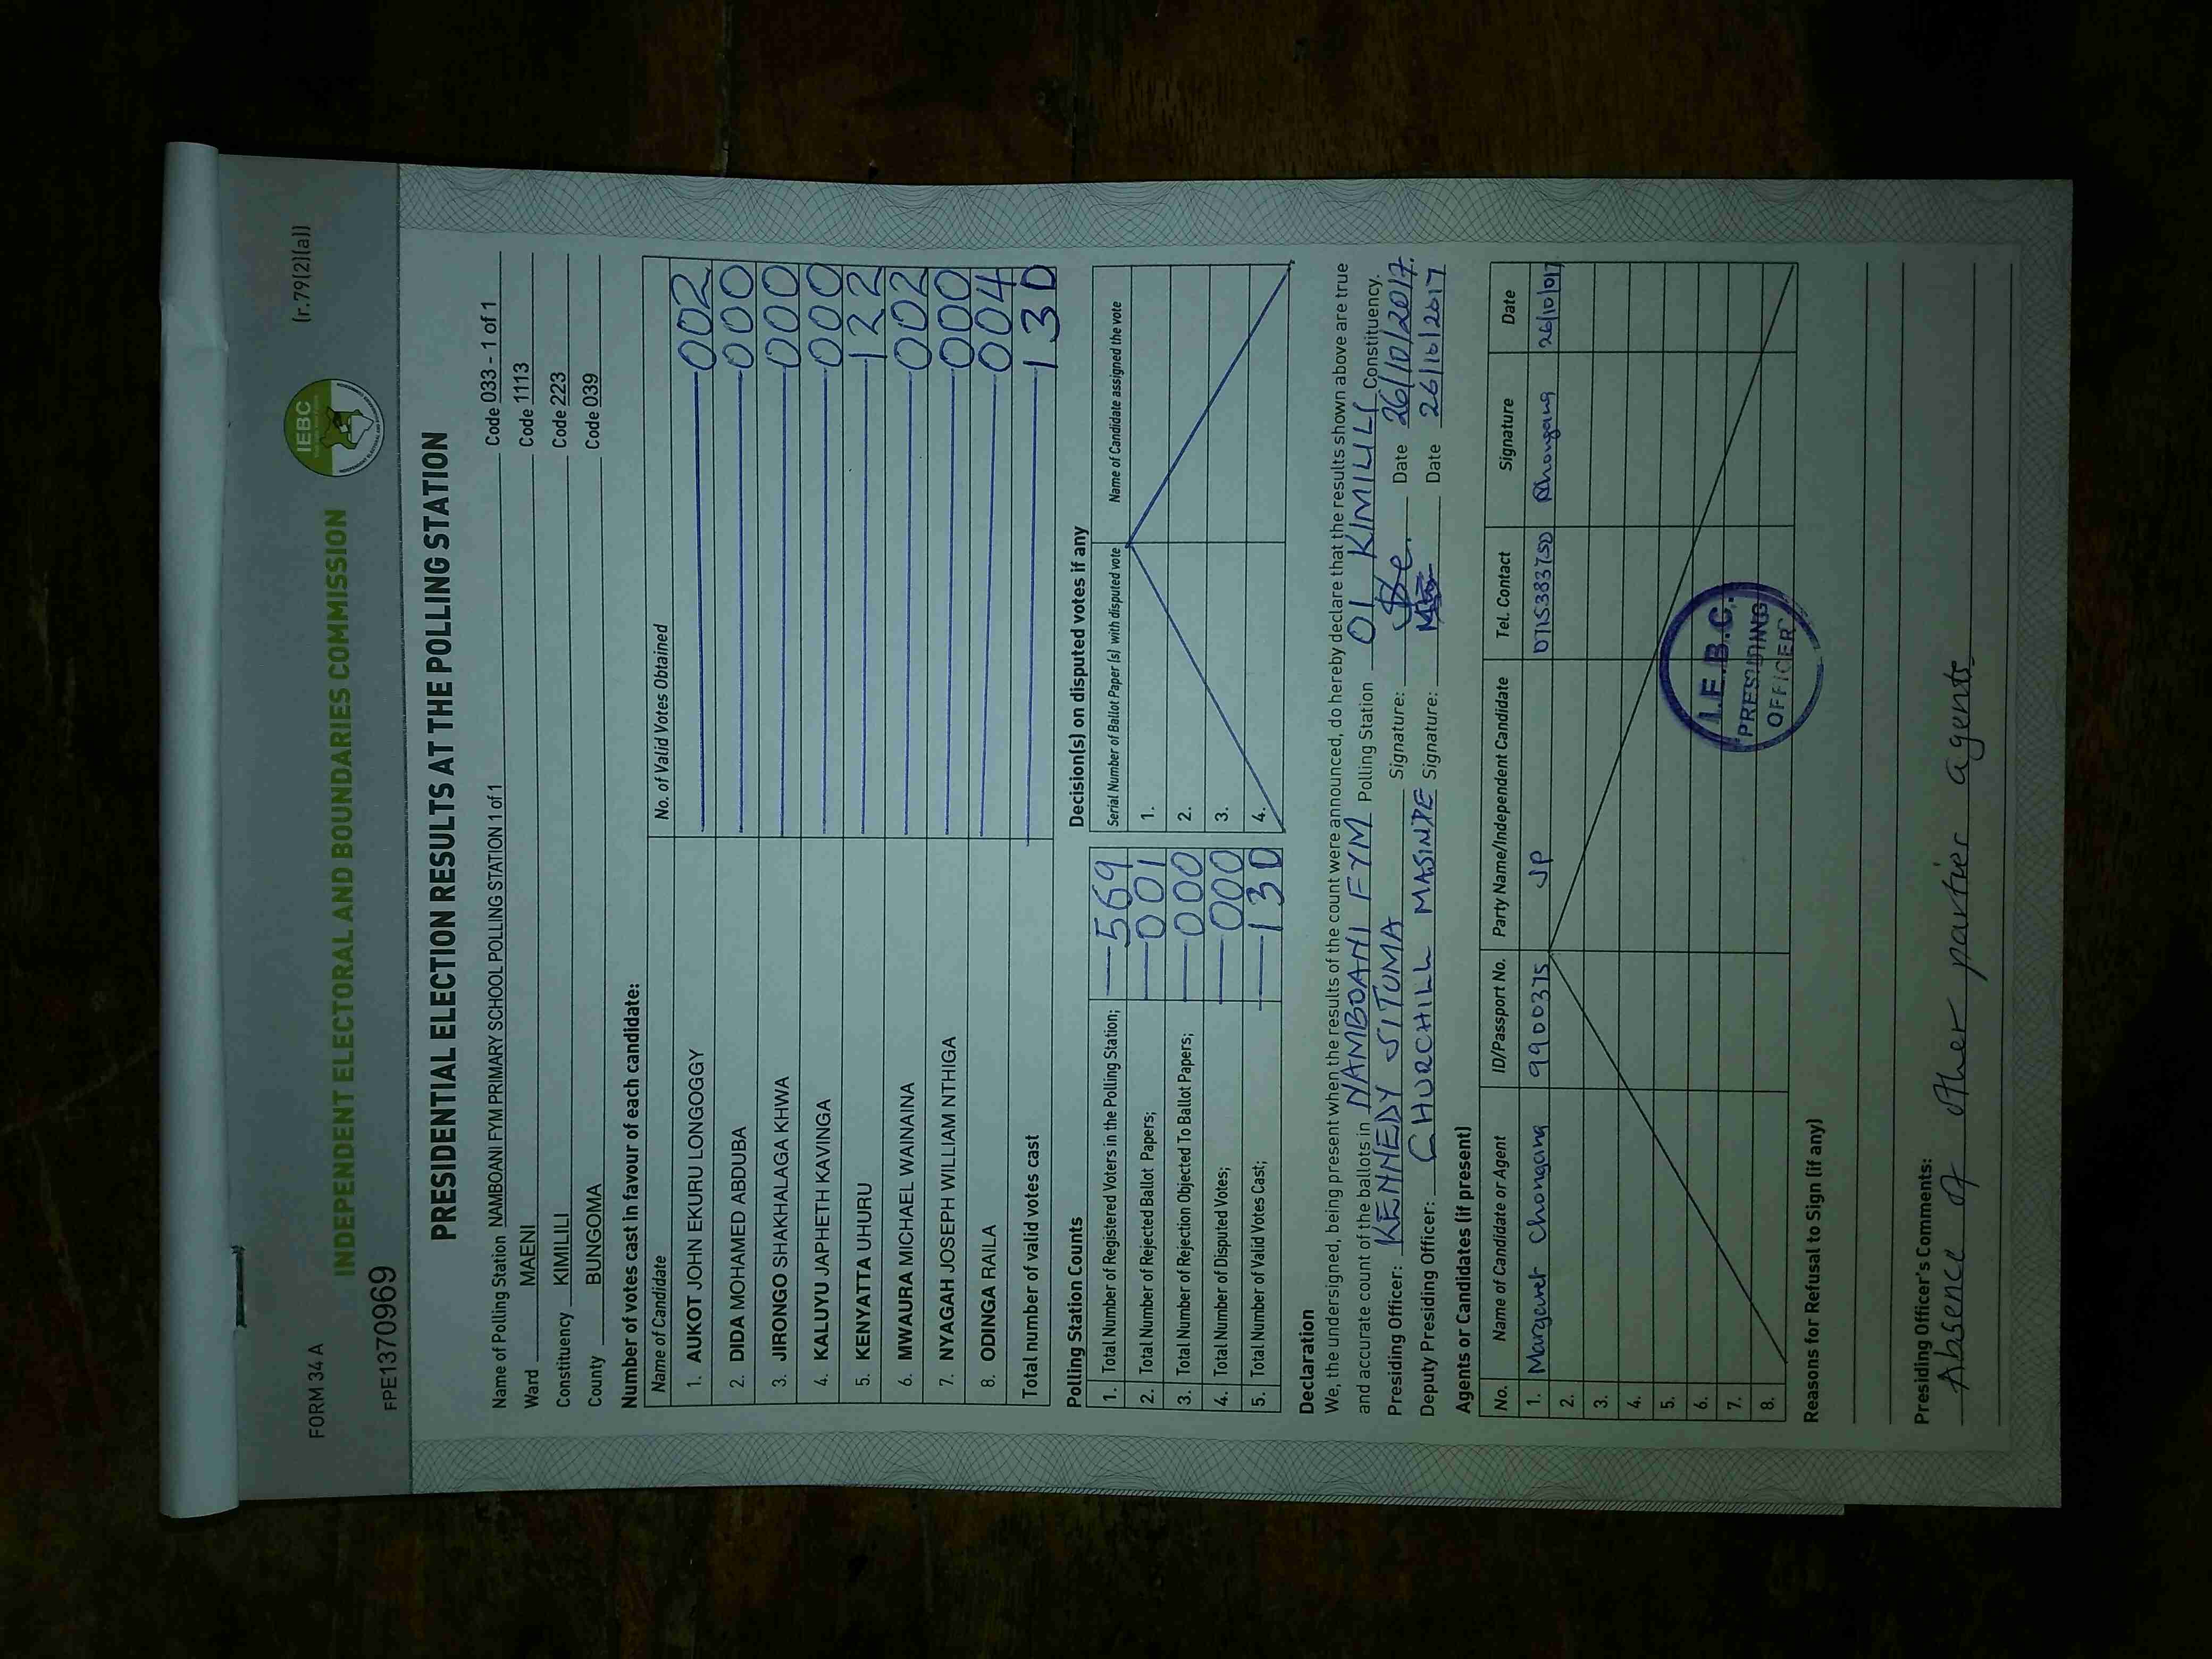 FORM 34 A
(r.79(2)(a))
IEBC
INDEPENDENT ELECTORAL AND BOUNDARIES COMMISSION
FPE1370969
PRESIDENTIAL ELECTION RESULTS AT THE POLLING STATION
Name of Polling Station NAMBOANI FYM PRIMARY SCHOOL POLLING STATION 1 of 1 Code 033 - 1 of 1
Ward MAENI Code 1113
Constituency KIMILILI Code 223
County BUNGOMA Code 039
Number of votes cast in favour of each candidate:
Name of Candidate No. of Valid Votes Obtained
1. AUKOT JOHN EKURU LONGOGGY 002
2. DIDA MOHAMED ABDUBA 000
3. JIRONGO SHAKHALAGA KHWA 000
4. KALUYU JAPHETH KAVINGA 000
5. KENYATTA UHURU 122
6. MWAURA MICHAEL WAINAINA 002
7. NYAGAH JOSEPH WILLIAM NTHIGA 000
8. ODINGA RAILA 004
Total number of valid votes cast 130
Polling Station Counts
1. Total Number of Registered Voters in the Polling Station; 569
2. Total Number of Rejected Ballot Papers; 001
3. Total Number of Rejection Objected To Ballot Papers; 000
4. Total Number of Disputed Votes; 000
5. Total Number of Valid Votes Cast; 130
Decision(s) on disputed votes if any
Serial Number of Ballot Paper (s) with disputed vote Name of Candidate assigned the vote
1.
2.
3.
4.
Declaration
We, the undersigned, being present when the results of the count were announced, do hereby declare that the results shown above are true
and accurate count of the ballots in NAMBOANI FYM Polling Station 01 KIMILILI Constituency.
Presiding Officer: KENNEDY SITUMA Signature: Date 26/10/2017.
Deputy Presiding Officer: CHURCHILL MASINDE Signature: Date 26/10/2017
Agents or Candidates (if present)
No. Name of Candidate or Agent ID/Passport No. Party Name/Independent Candidate Tel. Contact Signature Date
1. Margaret Chongang 9900375 JP 0715383750 26/10/017
2.
3.
4.
5.
6.
7.
8.
I.E.B.C.
PRESIDING
OFFICER
Reasons for Refusal to Sign (if any)
Presiding Officer's Comments:
Absence of other partier agents